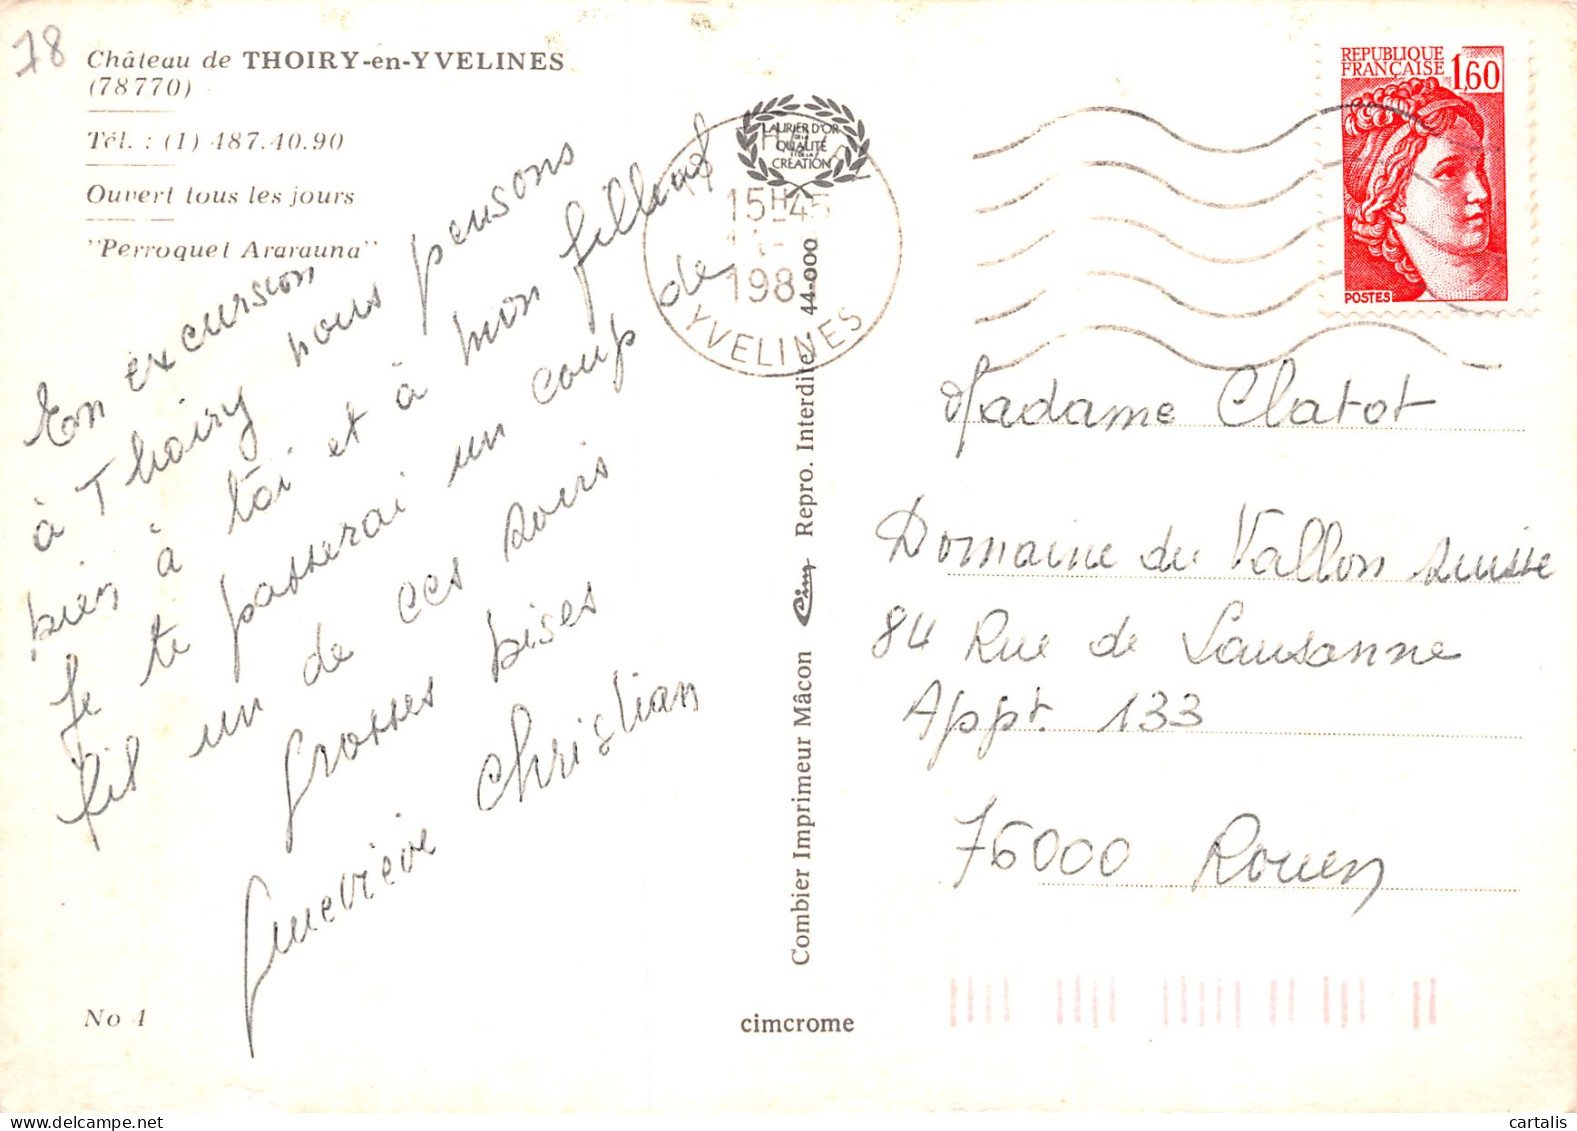 78
Château de THOIRY-en-YVELINES
(78770)
Tél. : (1) 487.40.90
Ouvert tous les jours
"Perroquet Ararauna"
En excursion
à Thoiry nous pensons
bien à toi et à mon filleul
Je te passerai un coup de
fil un de ces soirs
Grosses bises
Geneviève Christian
No 4
LAURIER D'OR
DE LA
QUALITÉ
ET DE LA
CRÉATION
15H45
198
YVELINES
Combier Imprimeur Mâcon Cim Repro. Interdite - 44-000
cimcrome
REPUBLIQUE
FRANÇAISE 1,60
POSTES
Madame Clatot
Domaine du Vallon suisse
84 Rue de Lausanne
Appt. 133
76000 Rouen
delcampe.net
cartalis